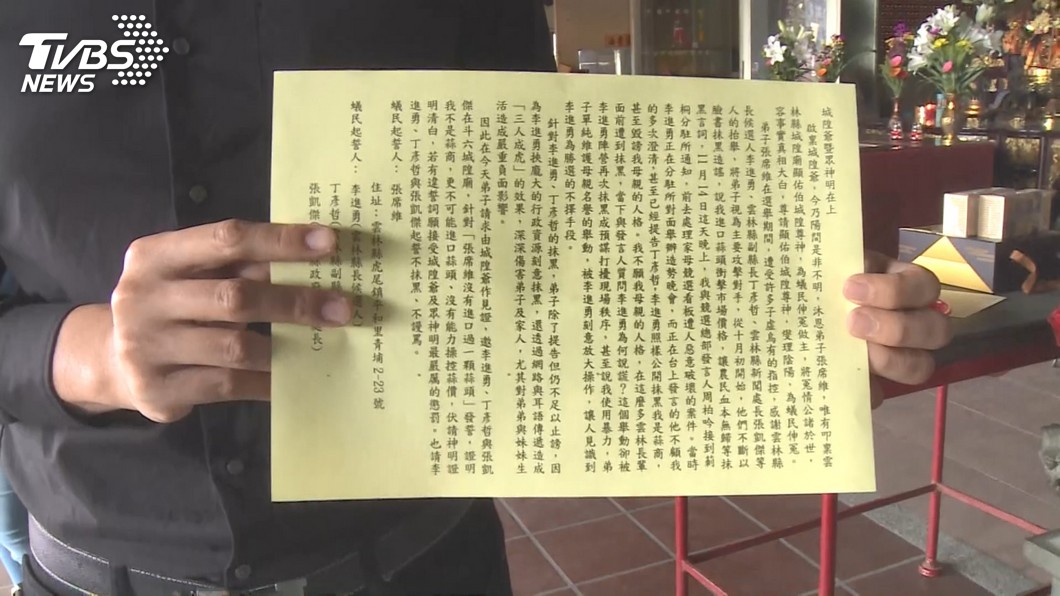 TVBS
NEWS
城隍爺暨眾神明在上
啟稟城隍爺,今乃陽間是非不明,沐恩弟子張席維,唯有叩稟雲
林縣城隍廟顯佑伯城隍尊神,為蟻民伸冤做主,將冤情公諸於世,
容事實真相大白,尊請顯佑伯城隍尊神,燮理陰陽,為蟻民伸冤。
弟子張席維在選舉期間,遭受許多子虛烏有的指控,感謝雲林縣
長候選人李進勇、雲林縣副縣長丁彥哲、雲林縣新聞處長張凱傑等
人的抬舉,將弟子視為主要攻擊對手,從十月初開始,他們不斷以
臉書抹黑造謠,說我進口蒜頭衝擊市場價格,讓農民血本無歸等抹
黑言詞,一一月一一日這天晚上,我與競選總部發言人周柏吟接到莿
桐分駐所通知,前去處理家母競選看板遭人惡意破壞的案件。當時
李進勇正在分駐所對面舉辦造勢晚會,而正在台上發言的他不顧我
的多次澄清,甚至已經提告丁彥哲,李進勇照樣公開抹黑我是蒜商,
甚至毀謗我母親的人格。我不願我母親的人格,在這麼多雲林長輩
面前遭到抹黑,當下與發言人質問李進勇為何說謊?這個舉動卻被
李進勇陣營再次抹黑成預謀打擾現場秩序,甚至說我使用暴力,弟
子單純維護母親名譽的舉動,被李進勇刻意放大操作,讓人見識到
李進勇為勝選的不擇手段。
針對李進勇、丁彥哲的抹黑,弟子除了提告但仍不足以止謗,因
為李進勇挾龐大的行政資源刻意抹黑,還透過網路與耳語傳遞造成
「三人成虎」的效果,深深傷害弟子及家人,尤其對弟弟與妹妹生
活造成嚴重負面影響。
因此在今天弟子請求由城隍爺作見證,邀李進勇、丁彥哲與張凱
傑在斗六城隍廟,針對「張席維沒有進口過一顆蒜頭」發誓,證明
我不是蒜商,更不可能進口蒜頭、沒有能力操控蒜價,伏請神明證
明清白,若有違誓詞願接受城隍爺及眾神明最嚴厲的懲罰。也請李
進勇、丁彥哲與張凱傑起誓不抹黑、不謾罵。
蟻民起誓人:張席維
住址:雲林縣虎尾鎮平和里青埔2-23號
蟻民起誓人:李進勇(雲林縣長候選人)
丁彥哲(林縣副縣
張凱傑(政府長)